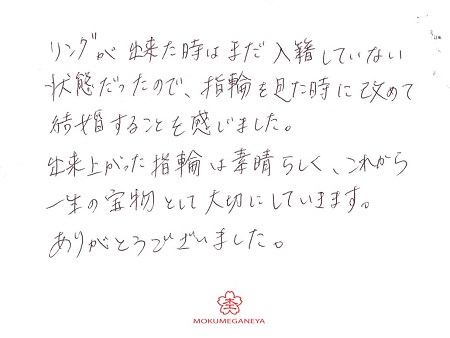 リングが出来た時はまだ入籍していない
状態だったので、指輪を見た時に改めて
結婚することを感じました。
出来上がった指輪は素晴らしく、これから
一生の宝物として大切にしていきます。
ありがとうございました。
MOKUMEGANEYA